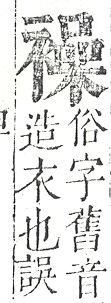 俗字舊音
造衣也誤